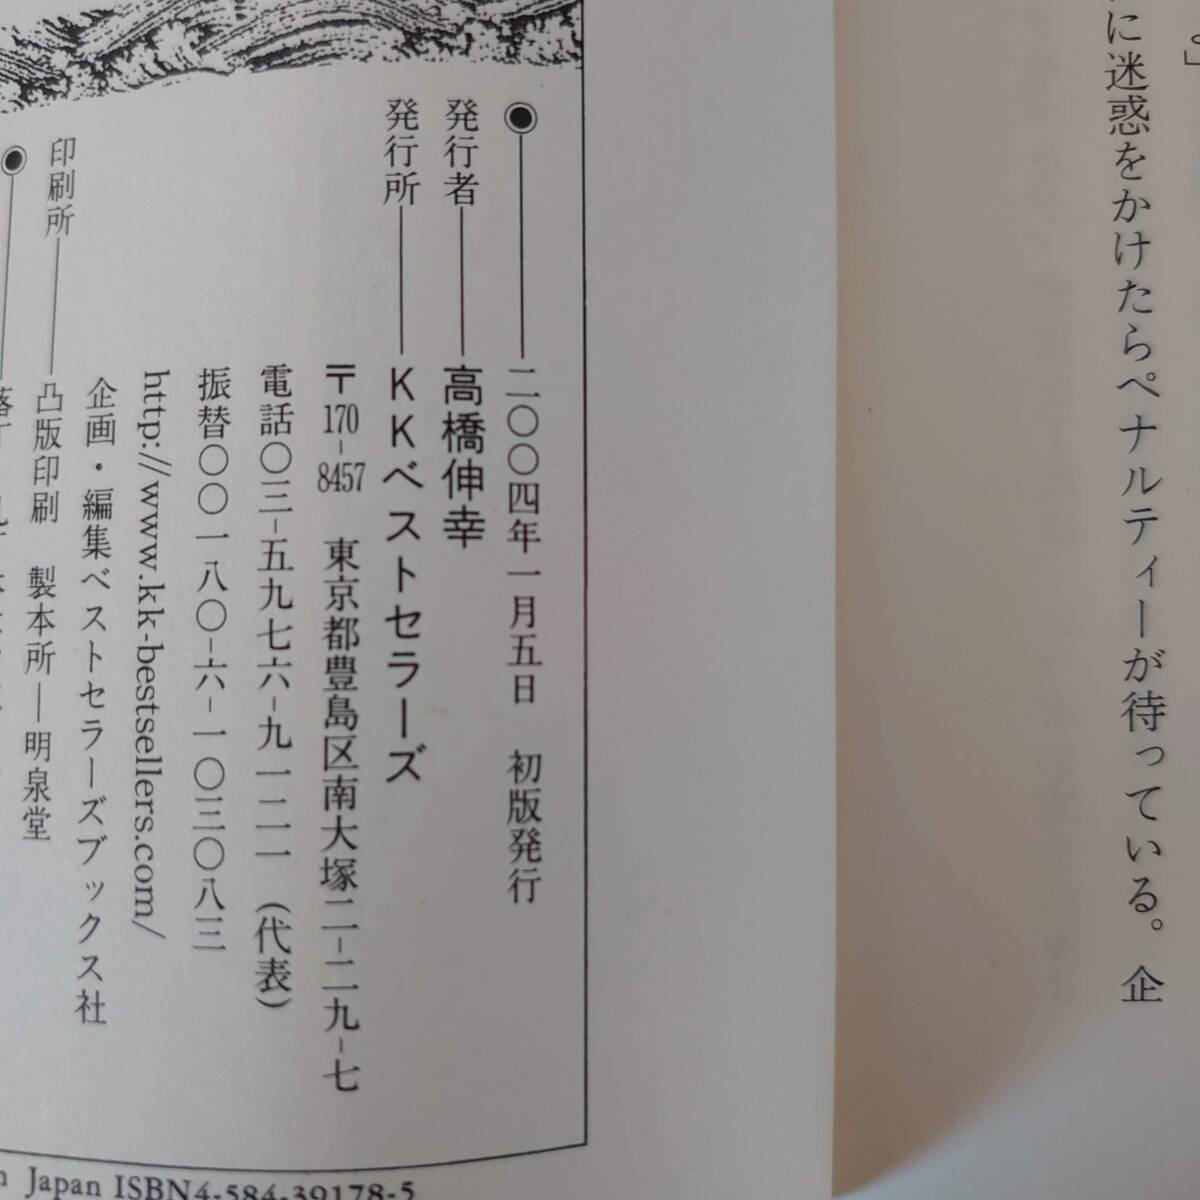 よ」
に迷惑をかけたらペナルティーが待っている。企
二〇〇四年一月五日 初版発行
発行者 高橋伸幸
発行所 KKベストセラーズ
〒170-8457 東京都豊島区南大塚二-二九-七
電話〇三-五九七六-九一二一(代表)
振替〇〇一八〇-六-一〇三〇八三
http://www.kk-bestsellers.com/
企画・編集ベストセラーズブックス社
印刷所 凸版印刷 製本所 明泉堂
Japan ISBN4-584-39178-5